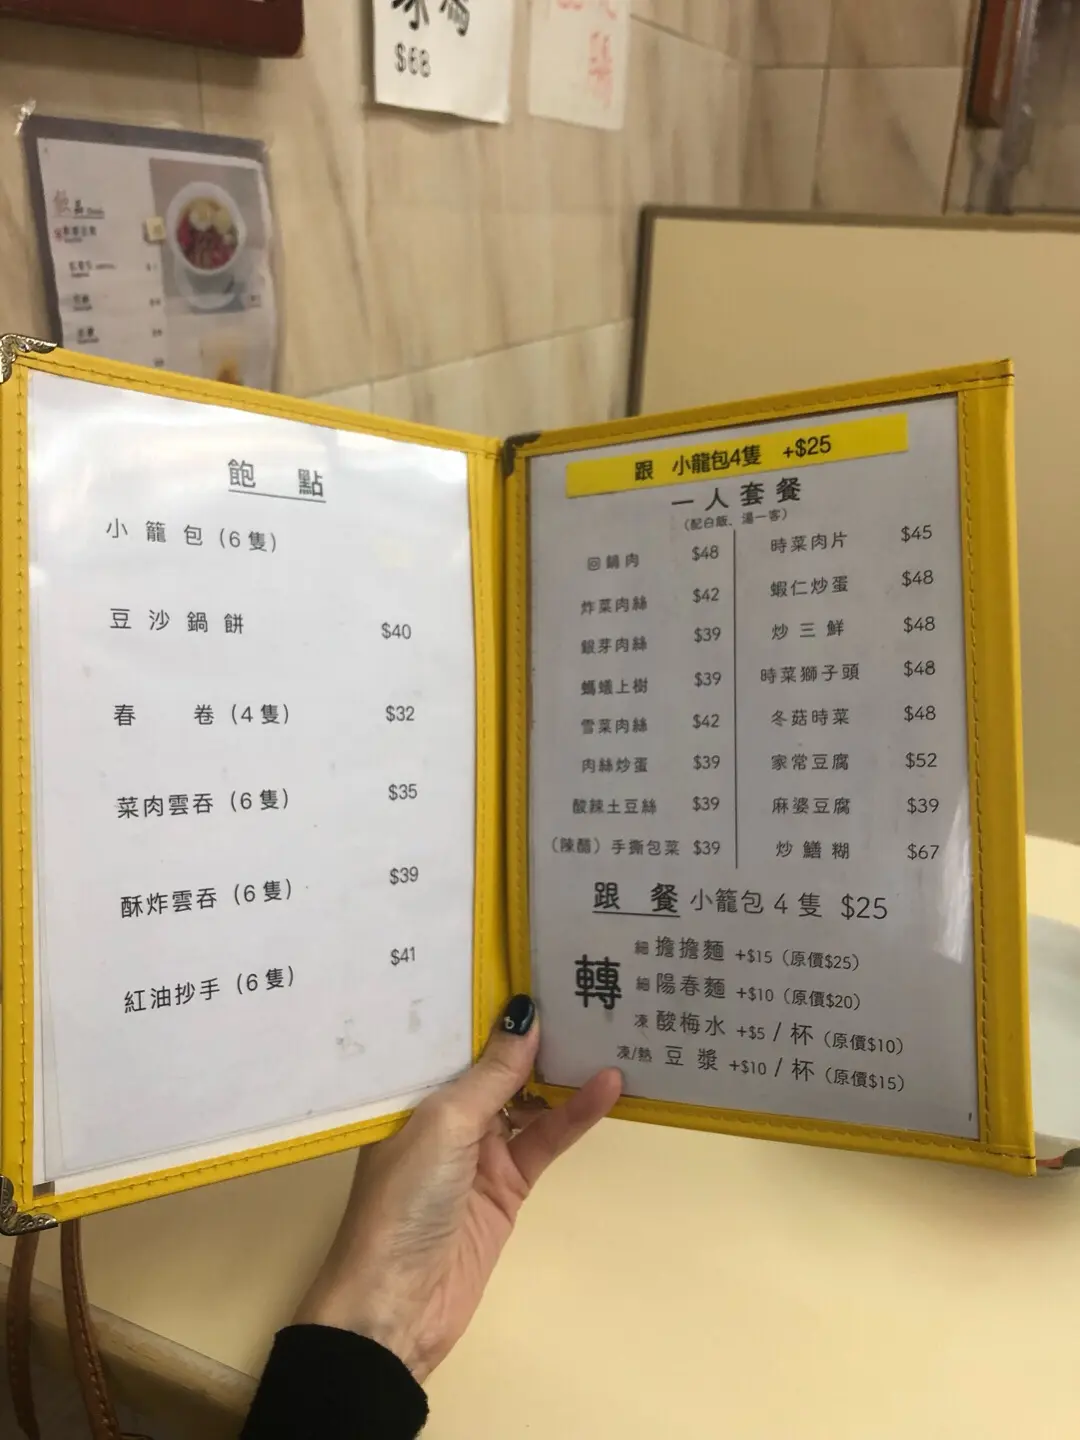 $68
飲品
飽 點
小籠包(6隻)
豆沙鍋餅 $40
春 卷(4隻) $32
菜肉雲吞(6隻) $35
酥炸雲吞(6隻) $39
紅油抄手(6隻) $41
跟 小龍包4隻 +$25
一人套餐
(配白飯、湯一客)
回鍋肉 $48
炸菜肉絲 $42
銀芽肉絲 $39
螞蟻上樹 $39
雪菜肉絲 $42
肉絲炒蛋 $39
酸辣土豆絲 $39
(陳醋)手撕包菜 $39
時菜肉片 $45
蝦仁炒蛋 $48
炒三鮮 $48
時菜獅子頭 $48
冬菇時菜 $48
家常豆腐 $52
麻婆豆腐 $39
炒鱔糊 $67
跟 餐 小籠包4隻 $25
轉
細 擔擔麵 +$15(原價$25)
細 陽春麵 +$10(原價$20)
凍 酸梅水 +$5/杯(原價$10)
凍/熱 豆漿 +$10/杯(原價$15)